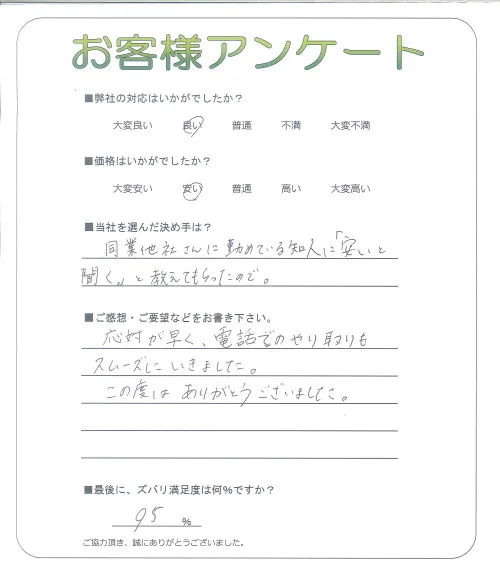 お客様アンケート
■弊社の対応はいかがでしたか？
大変良い 良い 普通 不満 大変不満
■価格はいかがでしたか？
大変安い 安い 普通 高い 大変高い
■当社を選んだ決め手は？
同業他社さんに勤めている知人に「安いと
聞く」と教えてもらったので。
■ご感想・ご要望などをお書き下さい。
応対が早く、電話でのやり取りも
スムーズにいきました。
この度は ありがとうございました。
■最後に、ズバリ満足度は何％ですか？
95 ％
ご協力頂き、誠にありがとうございました。